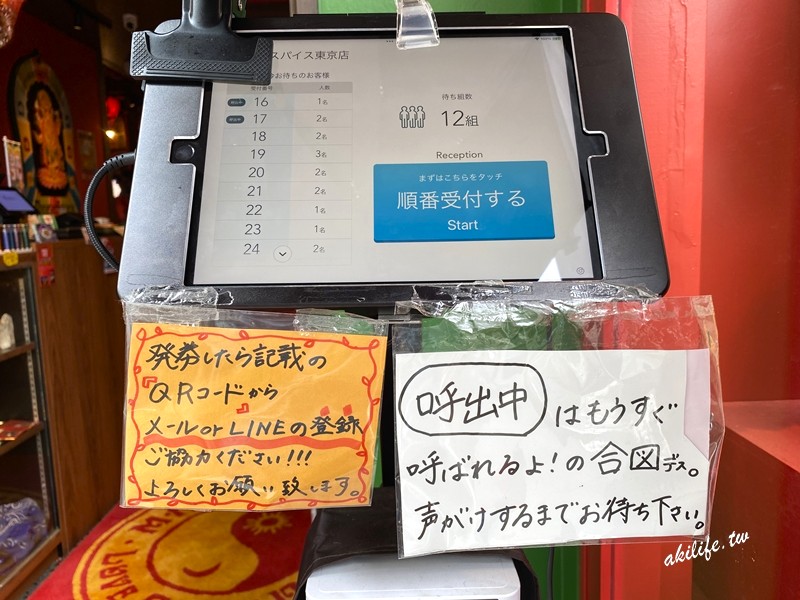 スパイス東京店
お待ちのお客様
受付番号 人数
呼出中 16 1名
呼出中 17 2名
18 2名
19 3名
20 2名
21 2名
22 1名
23 1名
24 2名
待ち組数
12組
Reception
まずはこちらをタッチ
順番受付する
Start
発券したら記載の
『QRコードから
メールor LINEの登録』
ご協力ください!!!
よろしくお願い致します。
呼出中 はもうすぐ
呼ばれるよ!の合図デス。
声がけするまでお待ち下さい。
akilife.tw